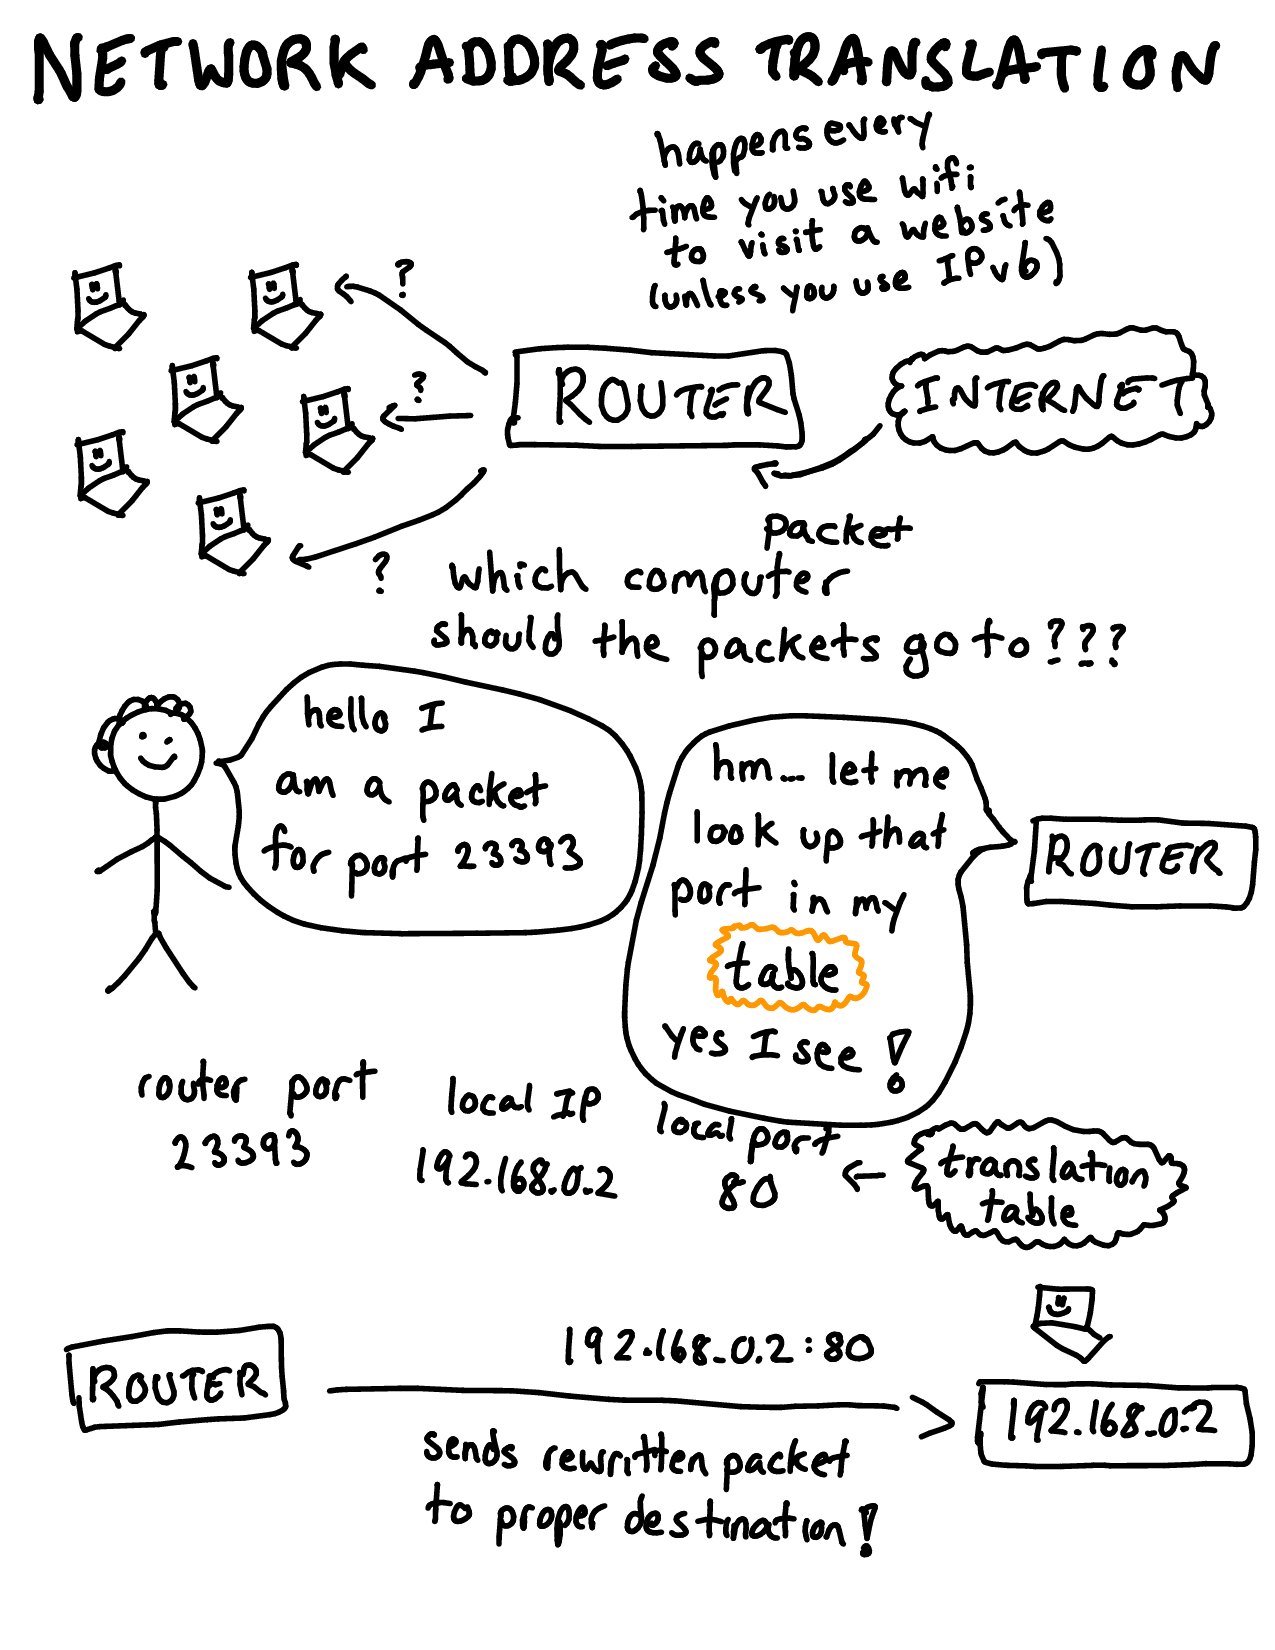 NETWORK ADDRESS TRANSLATION
happens every
time you use wifi
to visit a website
(unless you use IPv6)
?
?
ROUTER
INTERNET
packet
?
which computer
should the packets go to???
hello I
am a packet
for port 23393
hm... let me
look up that
port in my
table
yes I see!
ROUTER
router port local IP local port
23393 192.168.0.2 80
← translation
table
192.168.0.2:80
ROUTER
192.168.0.2
sends rewritten packet
to proper destination!